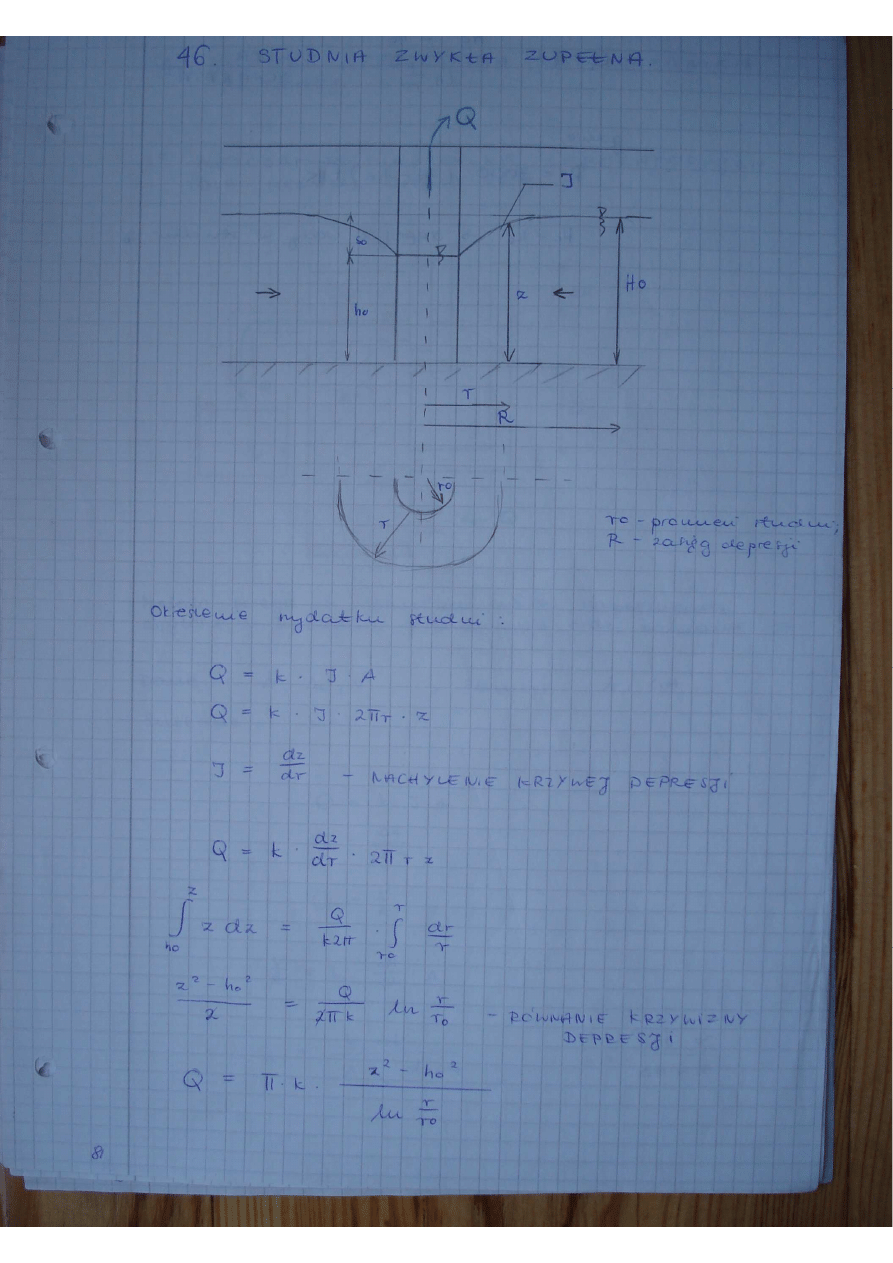 46. STUDNIA ZWYKŁA ZUPEŁNA.
Q
J
H0
z
h0
r
R
r0
r
r0 - promień studni;
R - zasięg depresji
Określenie wydatku studni:
Q = k · J · A
Q = k · J · 2πr · z
J = dz/dr - NACHYLENIE KRZYWEJ DEPRESJI
Q = k · dz/dr · 2π r z
∫_{h0}^{z} z dz = Q/k2π · ∫_{r0}^{r} dr/r
z² - h0²/2 = Q/2πk ln r/r0 - RÓWNANIE KRZYWIZNY
DEPRESJI
Q = π · k · z² - h0²/ln r/r0